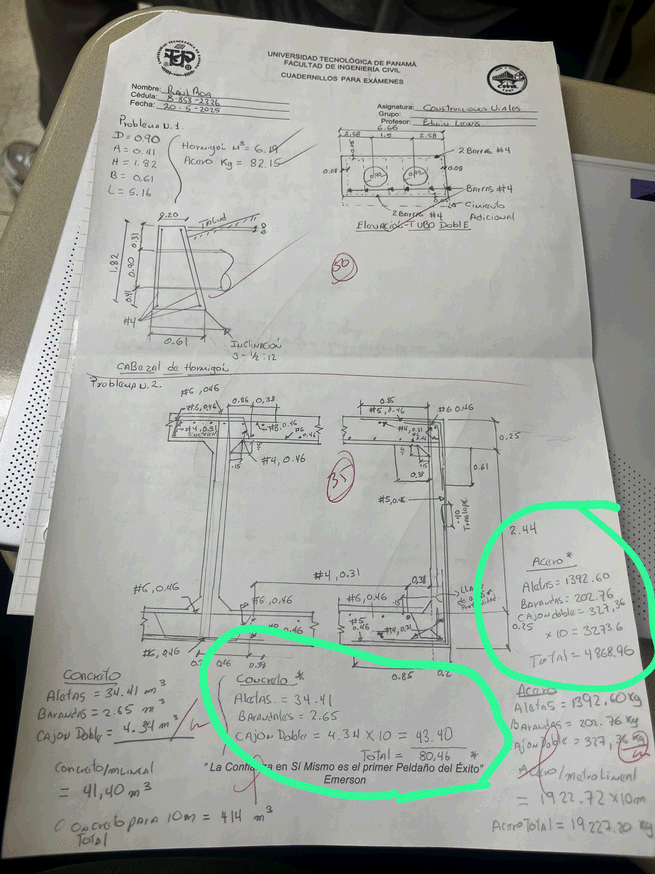 UNIVERSIDAD TECNOLÓGICA DE PANAMÁ
FACULTAD DE INGENIERÍA CIVIL
CUADERNILLOS PARA EXÁMENES
Nombre: Raúl Roa
Cédula: 8-858-2336
Fecha: 20-5-2025
Asignatura: Construcciones Viales
Grupo:
Profesor: Edwin Lewis
Problema N.1
D = 0.90
A = 0.41
H = 1.82
B = 0.61
L = 5.16
Hormigón M³ = 6.19
Acero Kg = 82.15
6.66
2.58 1.5 2.58
2 Barras #4
0.08
0.08
Barras #4
Cimiento
Adicional
2 Barras #4
Elevación - TUBO DOBLE
0.20
TALUD
0.31
1.82
0.90
0.41
#4
0.61
INCLINACIÓN
3 - 1/2 : 12
50
CABEZAL de Hormigón
Problema N.2.
#6, 0.46
#6, 0.46
0.86 0.38
#4, 0.31
#8, 0.46
#6
0.46
#4, 0.46
.15
35
0.85
#5, 0.46
#6 0.46
#4, 0.31
0.25
0.61
0.38
.15
#5, 0.46
.40
Traslape
2.44
#4, 0.31
#6, 0.46
#6, 0.46
0.46
#6, 0.46
0.46
0.38
#6, 0.46
0.38
.15
#5
0.46
#4, 0.31
0.25
0.85
Acero *
Aletas = 1392.60
Barandas = 202.76
CAJON doble = 327,36
x 10 = 3273.6
Total = 4868.96
CONCRETO
Aletas = 34.41 m³
BARANDAS = 2.65 m³
CAJON Doble = 4.34 m³
CONCRETO/mLINEAL
= 41,40 m³
CONCRETO PARA 10m = 414 m³
TOTAL
CONCRETO *
Aletas = 34.41
BARANDALES = 2.65
CAJON DOBLE = 4.34 x 10 = 43.40
Total = 80,46 *
"La Confianza en Sí Mismo es el primer Peldaño del Éxito"
Emerson
Acero
Aletas = 1392,60 Kg
Barandas = 202.76 Kg
Cajon Doble = 327,36 Kg
Acero/metro Lineal
= 1922.72 x 10m
Acero Total = 19227.20 Kg